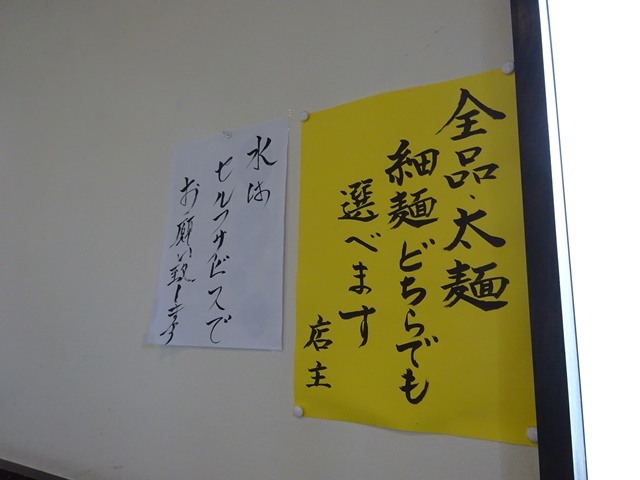 全品、太麺
細麺どちらでも
選べます
店主
水は
セルフサービスで
お願い致します